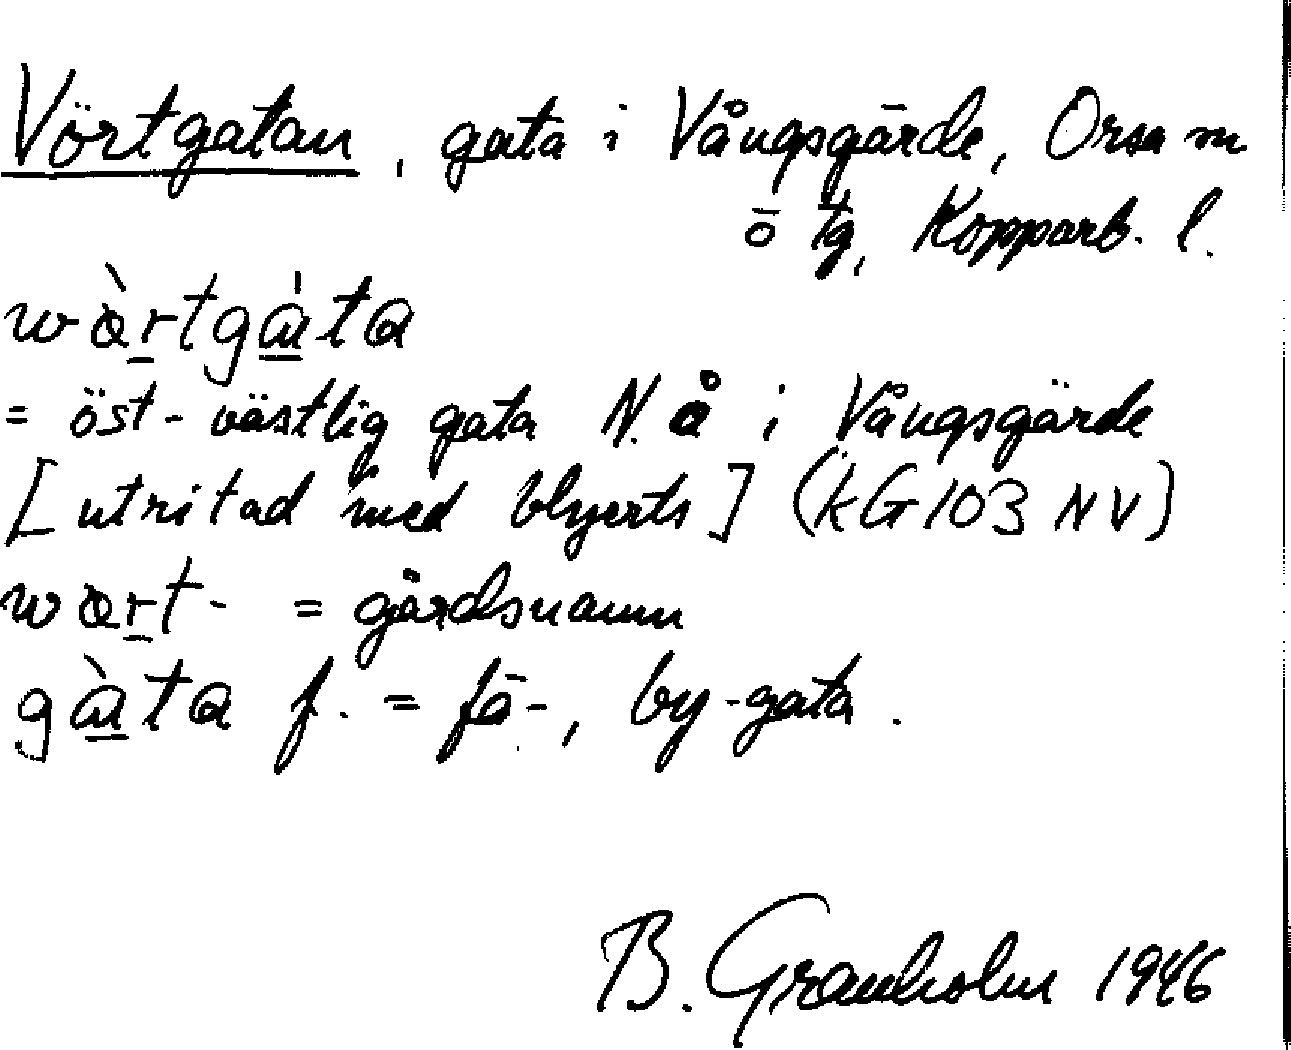 Vörtgatan, gata i Vångsgärde, Orsa sn
o tg, Kopparb. l.
wàrtgàta
= öst-västlig gata N. å i Vångsgärde
[utritad med blyerts] (kG103 NV)
wart- = gårdsnamn
gàta f. = fä-, by-gata.
B. Granholm 1946